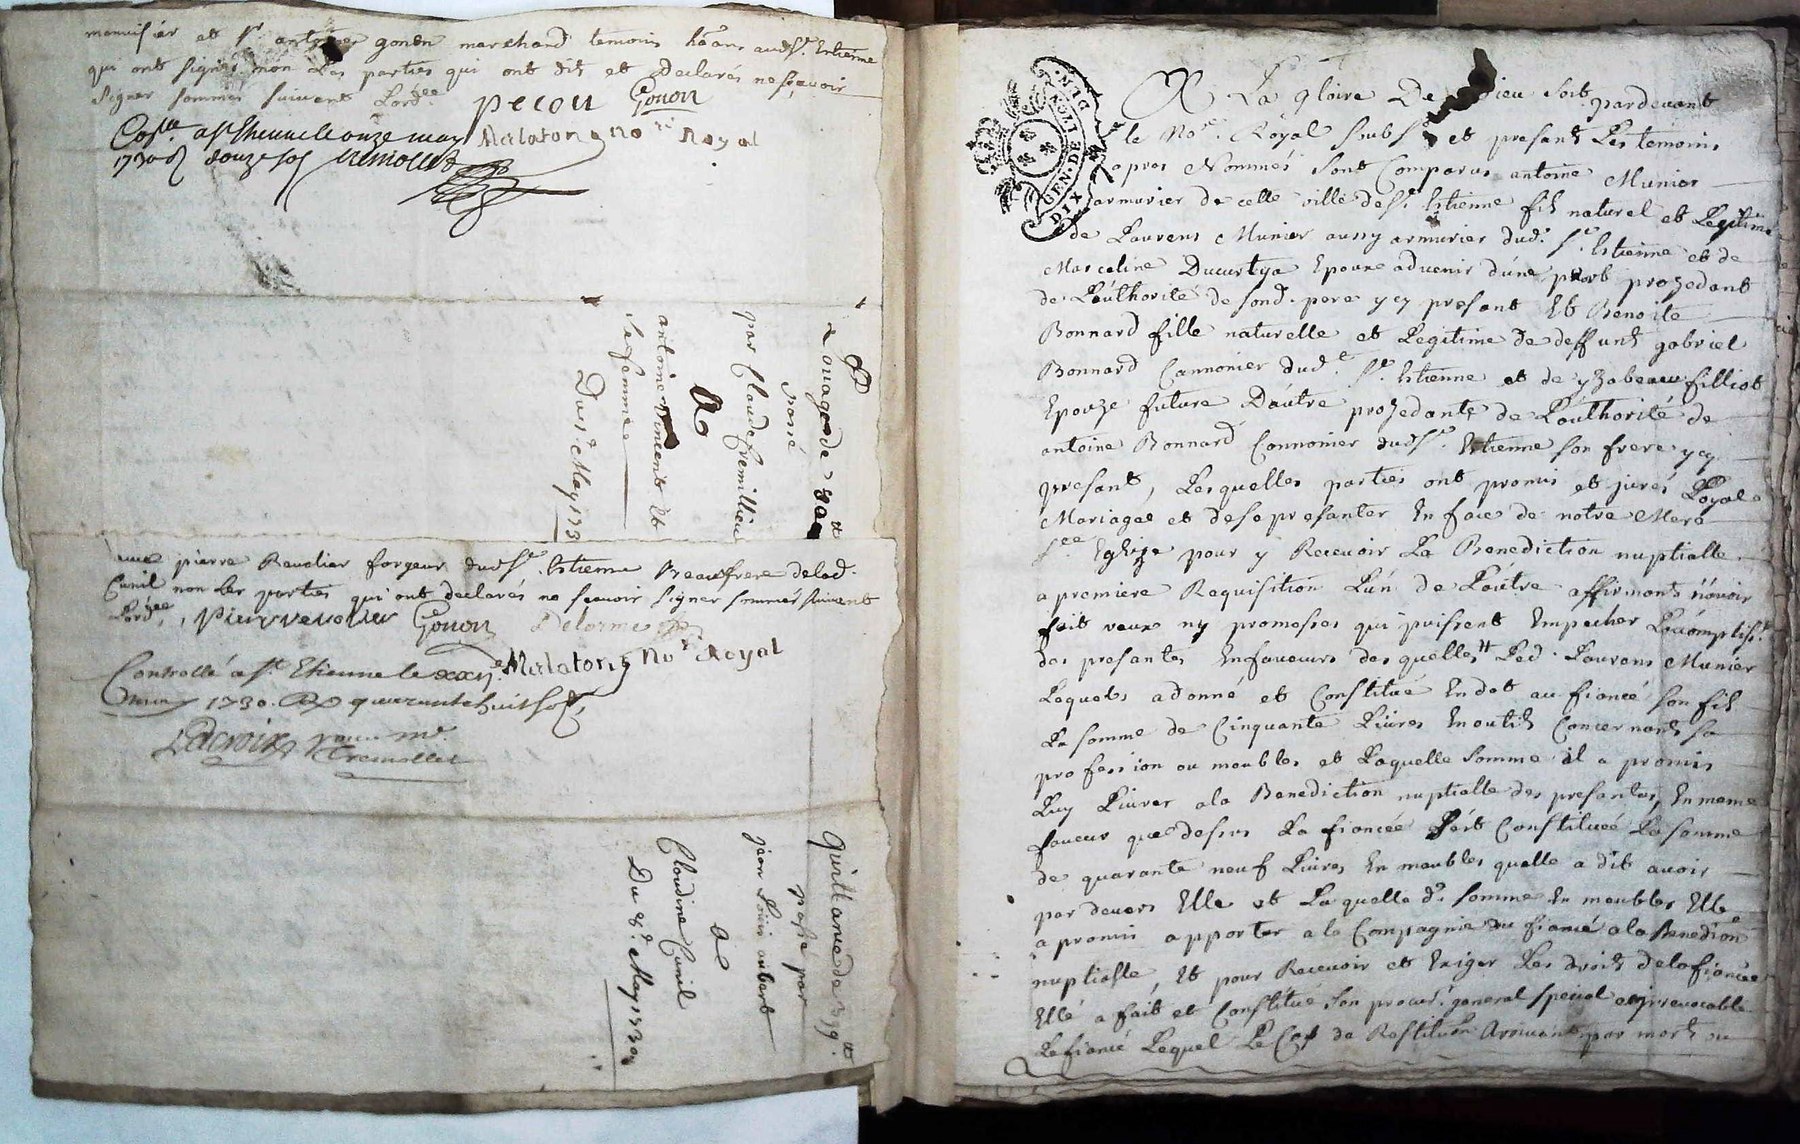 menuisier et Sr. gonon marchand temoins hãns audSt. Estienne
qui ont signés non Les parties qui ont dit et Declarés ne sçavoir
Signer sommés suivant Lordce
pecou Gonon
Malaton no.re Royal
Collé a St Etienne le onze may
1730 R douze sols
Louage de 30tt
passé
par Claude fremillieu
A
antoine Vincent Et
sa femme
Du 1r May 1730
pierre Revolier forgeur dudSt. Estienne Beaufrere delad.
Cunil non Les parties qui ont declarés ne scavoir signer sommés suivant
Lordce, Pierre revolier Gonon Delorme
Malaton no.re Royal
Controllé a St. Etienne le xxii.e
may 1730. R quarante huit sols
Lacroix pour mr
Tremollet
Quittance de 319tt
passé par
jean Louis aubert
a
Claudine Cunil
Du 8e. May 1730
GEN. DE LION
DIX DEN.
A La gloire De Dieu soit pardevant
le No.re Royal soubs.né et presants Les temoins
apres Nommés sont Comparus antoine Munier
armurier de cette ville de St. Estienne fils naturel et Legitime
de Laurens Munier aussy armurier dud. St. Estienne et de
Marceline Ducurtya Epoux advenir d'une part prozedant
de L'authorité de sond. pere ycy presant Et Benoite
Bonnard fille naturelle et Legitime de deffunt gabriel
Bonnard Cannonier dud.t St. Estienne et de yzabeau filliot
Epouze future D'autre prozedante de L'authorité de
antoine Bonnard Connonier dudSt. Estienne son frere ycy
presant, Lesquelles parties ont promis et jurés Loyal
Mariage et de se presanter En face de notre Mere
Ste Eglize pour y Recevoir La Benediction nuptialle
a premiere Requisition L'un de L'autre affirmants n'avoir
fait veux ny promesses qui puissent Empecher L'acomplisst.
des presantes Enfaveurs des quelles Led. Laurens Munier
Lequel a donné et Constitué En dot au fiancé son fils
La somme de Cinquante Livres En outils Concernants sa
profession ou meubles et Laquelle somme il a promis
Luy Livrer a la Benediction nuptialle des presantes, En meme
faveur que dessus La fiancée s'est Constituée La somme
de quarante neuf Livres En meubles quelle a dit avoir
par devers Elle et La quelle d.e somme En meubles Elle
a promis apporter a la Compagnie du fiancé a la Bened'ion
nuptialle, Et pour Recevoir et Exiger Les droits de la fiancée
Elle a fait et Constitué son procur.r general special et irrevocable
Le fiancé Lequel Le Cas de Restitu.on Arrivant par mort ou